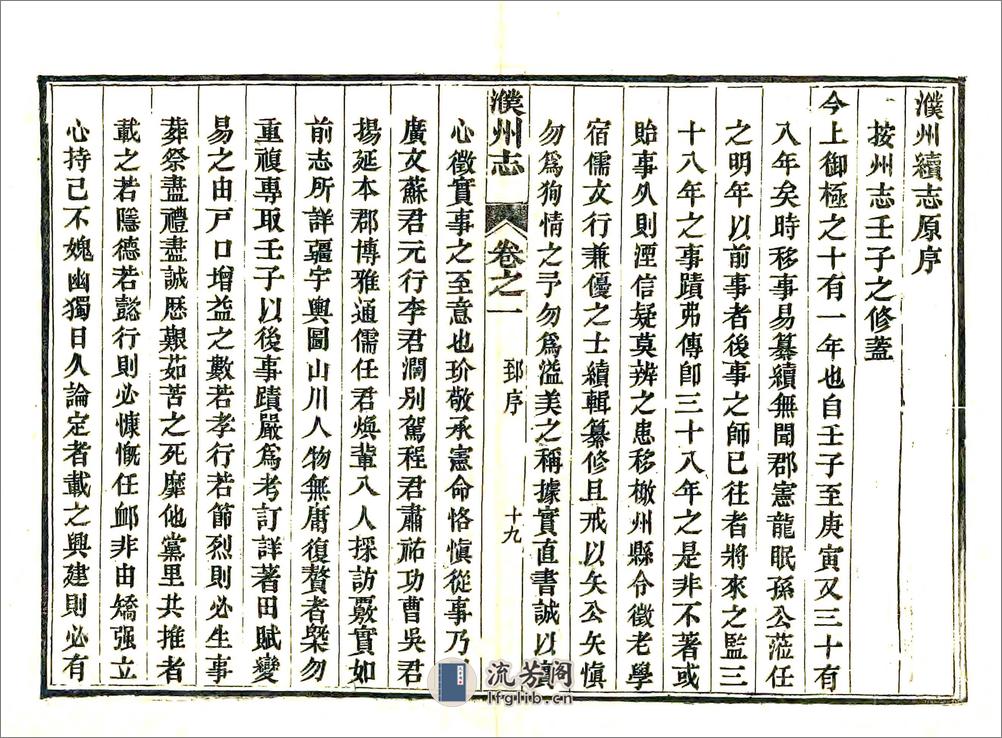 濮州續志原序
按州志壬子之修蓋
今上御極之十有一年也自壬子至庚寅又三十有
八年矣時移事易纂續無聞郡憲龍眠孫公蒞任
之明年以前事者後事之師已往者將來之監三
十八年之事蹟弗傳卽三十八年之是非不著或
貽事久則湮信疑莫辨之患移檄州縣令徵老學
宿儒文行兼優之士續輯纂修且戒以矢公矢愼
勿爲狥情之予勿爲溢美之稱據實直書誠以
濮州志 卷之一 郅序 十九
心徵實事之至意也玠敬承憲命恪愼從事乃
廣文蘇君元行李君濶别駕程君肅祐功曹吳君
揚延本郡博雅通儒任君煥輩八人採訪覈實如
前志所詳疆宇輿圖山川人物無庸復贅者槩勿
重複專取壬子以後事蹟嚴爲考訂詳著田賦變
易之由戸口增益之數若孝行若節烈則必生事
葬祭盡禮盡誠歷艱茹苦之死靡他黨里共推者
載之若隱德若懿行則必慷慨任䘏非由矯强立
心持己不媿幽獨日久論定者載之興建則必有
流芳阁
lfglib.cn